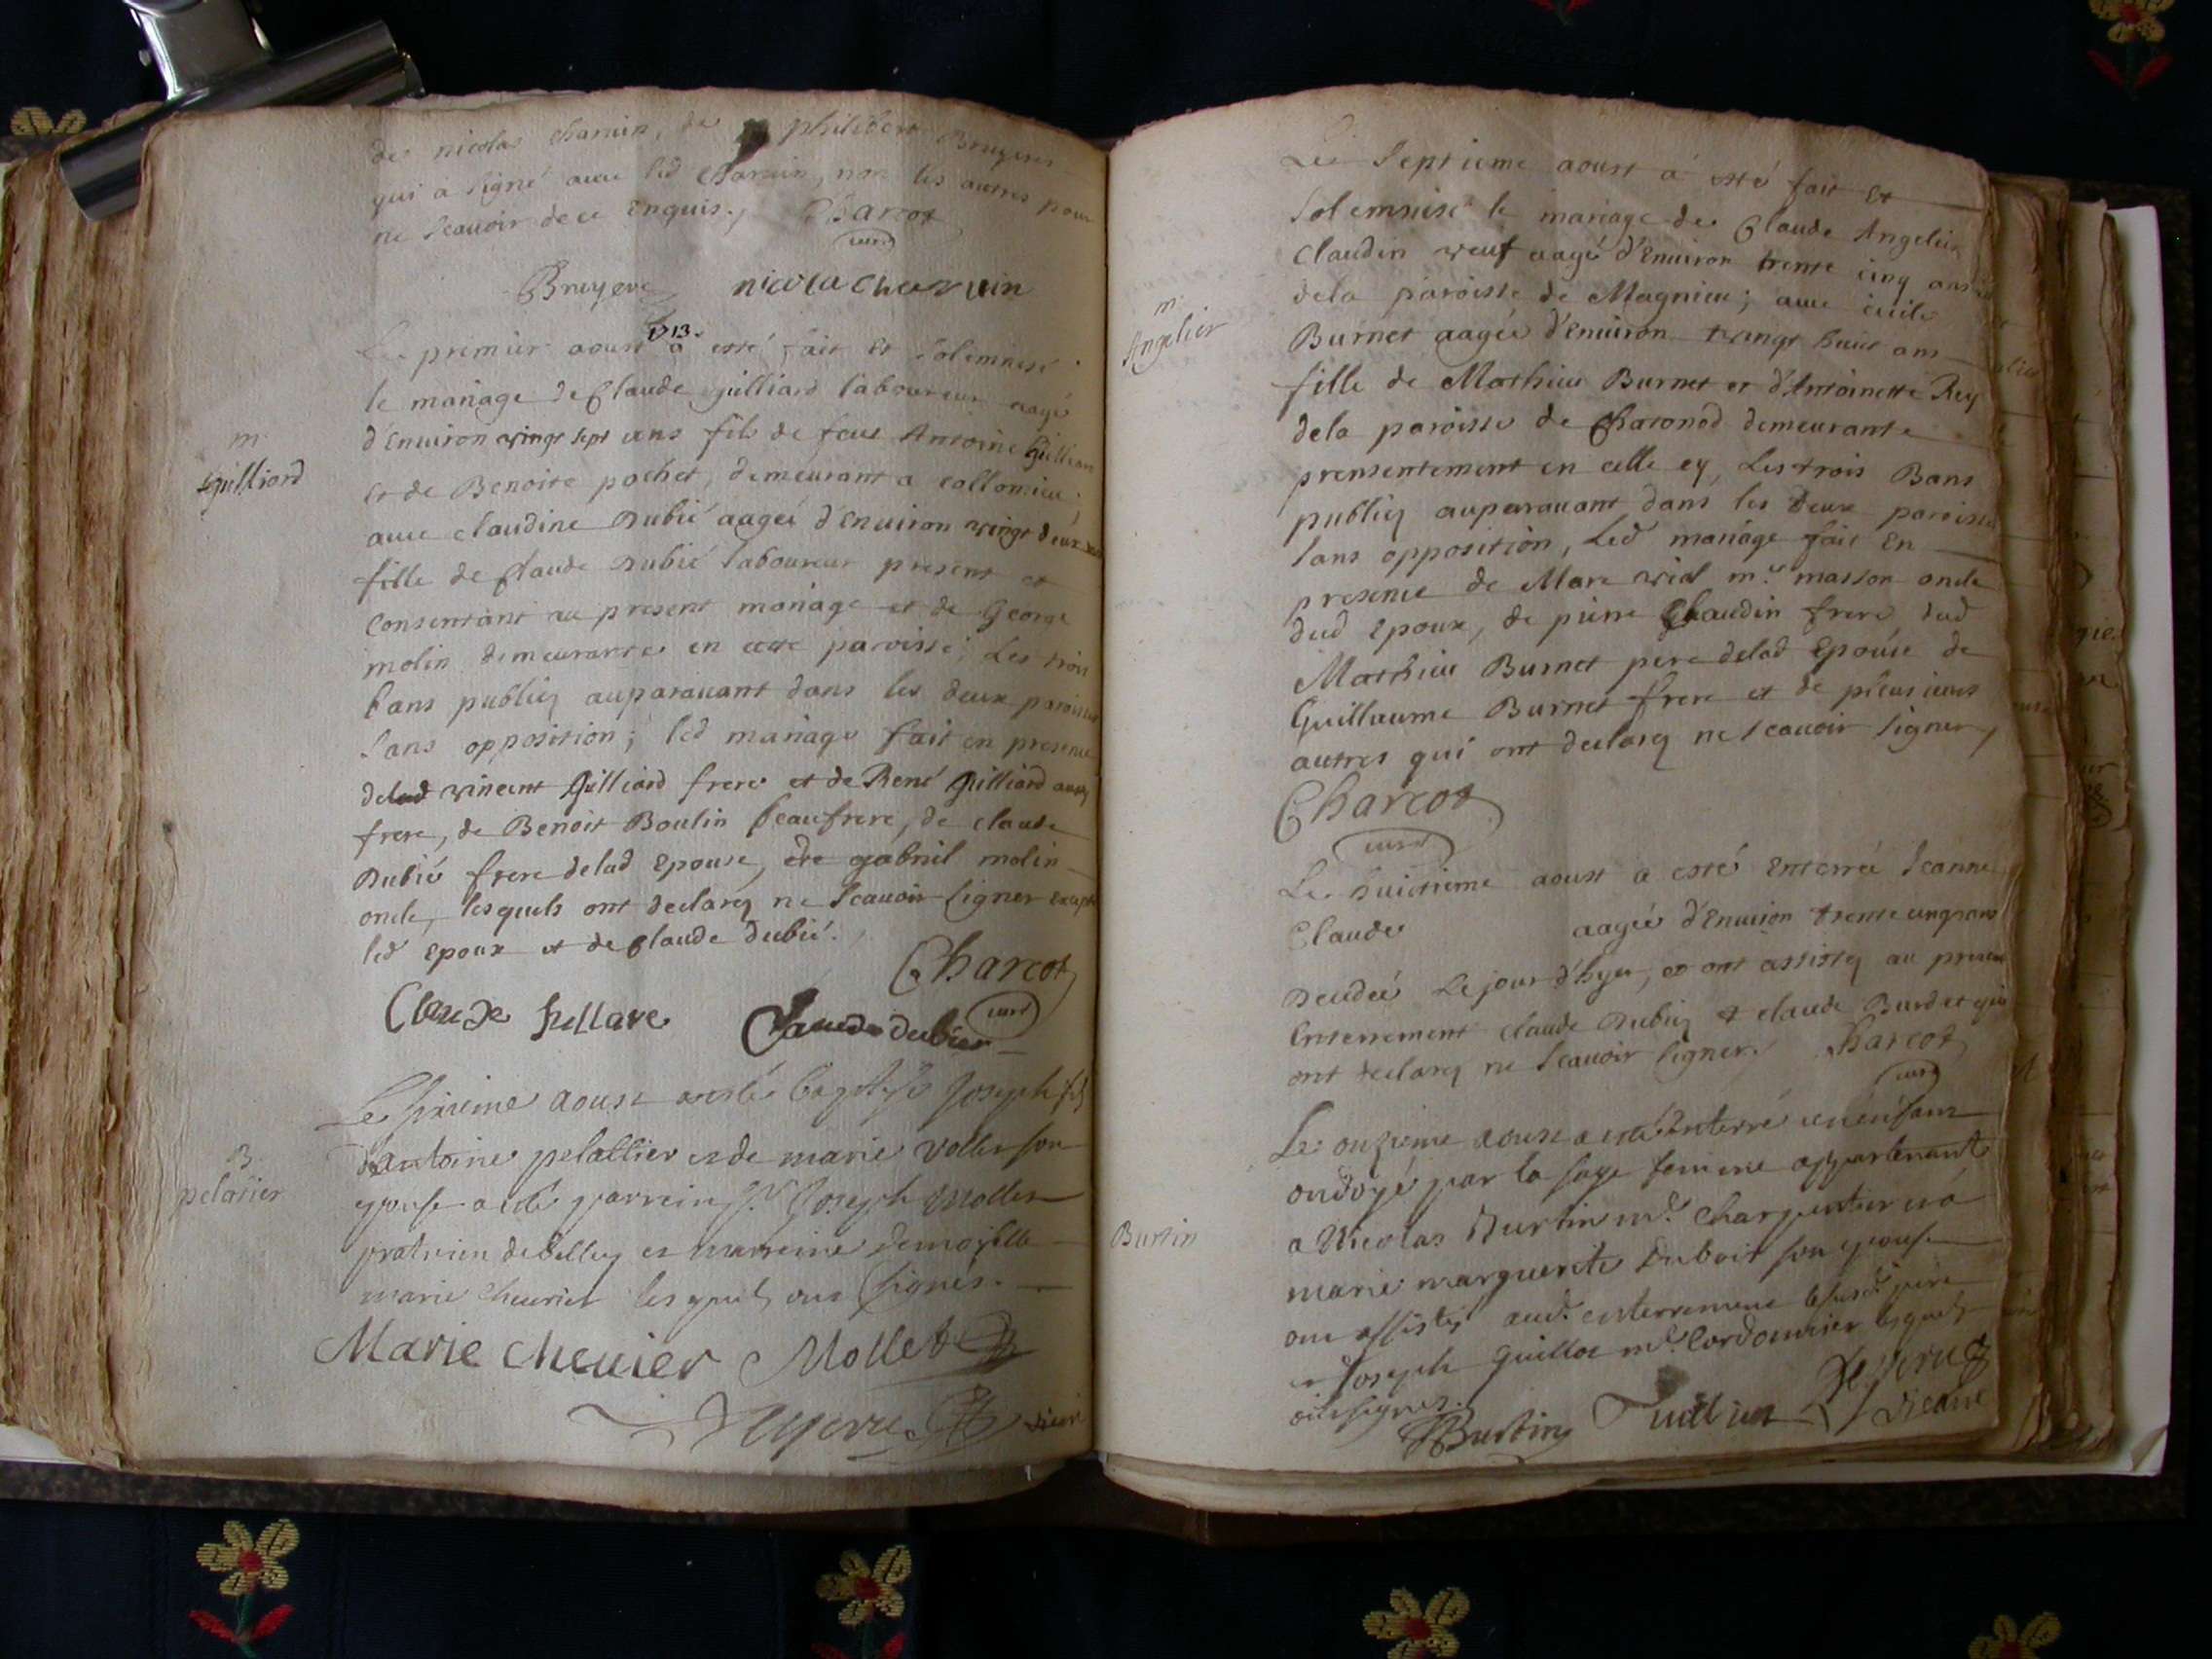 de nicolas charuin, de philibert Bruyere
qui a signé auec led charuin, non les autres pour
ne scauoir de ce Enquis. Charcot
curé
Bruyere nicola charuin
1713.
Le premier aoust a esté fait et solemnisé
le mariage de Claude guilliard laboureur aagé
d'Enuiron vingt sept ans fils de feu Antoine guilliard
et de Benoite pochet, demeurant a collomieu;
auec claudine Dubié aagée d'Enuiron vingt deux ans
fille de Claude Dubié laboureur present et
consentant au present mariage et de George
molin demeurante en cette paroisse; Les trois
bans publiez auparauant dans les deux paroisses
sans opposition; led mariage fait en presence
m.
guilliard
vincent guilliard frere et de René guilliard aussy
frere, de Benoit Boulin beaufrere, de claude
Dubié frere delad Epouse, de gabriel molin
oncle, lesquels ont declarez ne scauoir signer excepté
led Epoux et de Claude dubié.
Charcot
curé
Claude Claude dubier
Le sixieme aoust a esté baptisé Joseph fils
d'antoine pelattier et de marie vollet son
epouse a esté parrein Sr. Joseph Mollet
praticien de belley et marreine demoiselle
marie cheurier lesquels ont signés.
B.
pelatier
Marie cheuier Mollet
vicaire
Le septieme aoust a esté fait et
solemnisé le mariage de Claude Angelier
Claudin veuf aagé d'Enuiron trente cinq ans
dela paroisse de Magnieu; auec
Burnet aagée d'enuiron vingt huit ans
fille de Mathieu Burnet et d'Antoinette Rey
dela paroisse de Chatonod demeurante
prensentement en celle cy, Les trois Bans
publiez auparauant dans les deux paroisses
sans opposition, Led mariage fait En
presence de Marc vial me. masson oncle
dud Epoux, de pierre Claudin frere dud
Mathieu Burnet pere delad Epouse de
Guillaume Burnet frere et de plusieurs
autres qui ont declarez ne scauoir signer,
m.
Angelier
Charcot
curé
Le huictieme aoust a esté enterrée Jeanne
Claude aagée d'Enuiron trente cinq ans
Decedée Le jour d'hyer, et ont assistez au present
Enterrement claude Dubiez et claude Burdet qui
ont declarez ne scauoir signer. Charcot
curé
Le onzieme aoust a esté enterré un enfant
ondoyé par la sage femme appartenant
a Nicolas Burtin me. charpentier et a
marie marguerite Dubois son epouse
ont assistez aud. enterrement le susd. pere
et Joseph guillot me. Cordonnier lesquels
ont signez.
Burtin
Burtin vicaire